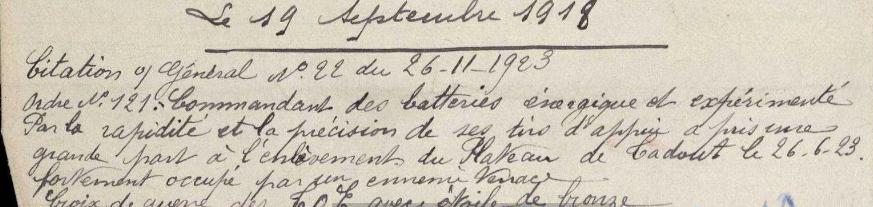 Le 19 Septembre 1918
Citation of Général N°. 22 du 26-11-1923
Ordre N°. 121: Commandant des batteries énergique et expérimenté
Par la rapidité et la précision de ses tirs d'appui a pris une
grande part à l'enlèvement du Plateau de Tadout le 26.6.23.
fortement occupé par un ennemi tenace
Croix de guerre des T.O.E avec étoile de bronze